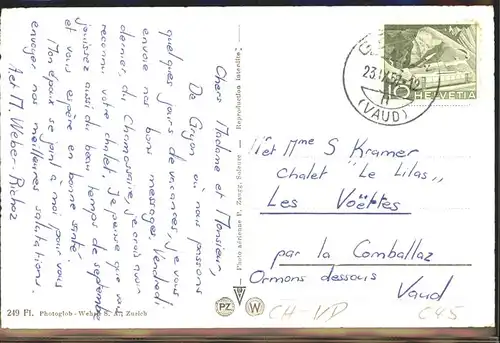 Chers Madame et Monsieur,
De Gryon où nous passons
quelques jours de vacances, je vous
envoie nos bons messages. Vendredi
dernier, du Chamossaire, je crois avoir
reconnu votre chalet. Je pense que vous
jouissez aussi du beau temps de septembre
et vous espère en bonne santé.
Mon épouse se joint à moi pour vous
envoyer nos meilleures salutations.
A et M. Weber-Richoz
249 Fl. Photoglob-Wehrli S. A., Zurich
Photo aérienne P. Zaugg, Soleure - Reproduction interdite
PZ
W
10
HELVETIA
(VAUD)
et Mme S Kramer
Chalet "Le Lilas"
Les Voëttes
par la Comballaz
Ormons dessous
Vaud
CH-VD
C45